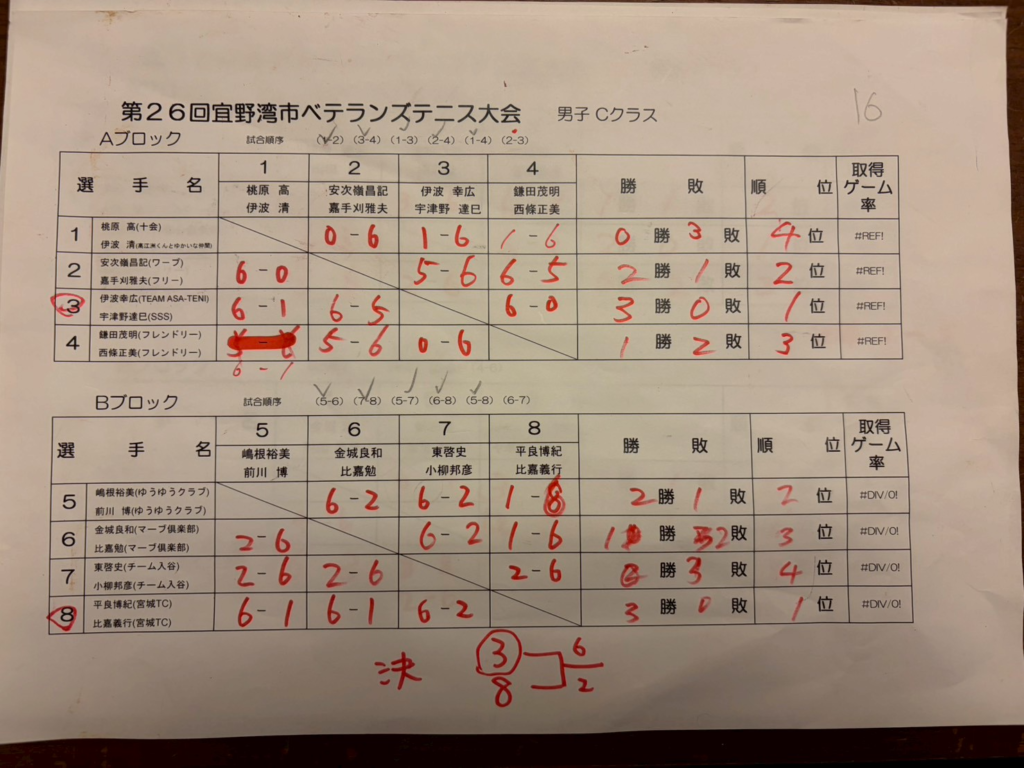 第２６回宜野湾市ベテランズテニス大会 男子 Cクラス 16
Aブロック 試合順序 (1-2) (3-4) (1-3) (2-4) (1-4) (2-3)
選 手 名 1 2 3 4 勝 敗 順 位 取得ゲーム率
桃原 高 安次嶺昌記 伊波 幸広 鎌田茂明
伊波 清 嘉手刈雅夫 宇津野 達巳 西條正美
1 桃原 高(十会) 0-6 1-6 1-6 0 勝 3 敗 4 位 #REF!
伊波 清
2 安次嶺昌記(ワープ) 6-0 5-6 6-5 2 勝 1 敗 2 位 #REF!
嘉手刈雅夫(フリー)
3 伊波幸広(TEAM ASA-TENI) 6-1 6-5 6-0 3 勝 0 敗 1 位 #REF!
宇津野達巳(SSS)
4 鎌田茂明(フレンドリー) 5-6 0-6 1 勝 2 敗 3 位 #REF!
西條正美(フレンドリー)
6-1
Bブロック 試合順序 (5-6) (7-8) (5-7) (6-8) (5-8) (6-7)
選 手 名 5 6 7 8 勝 敗 順 位 取得ゲーム率
嶋根裕美 金城良和 東啓史 平良博紀
前川 博 比嘉勉 小柳邦彦 比嘉義行
5 嶋根裕美(ゆうゆうクラブ) 6-2 6-2 1-6 2 勝 1 敗 2 位 #DIV/0!
前川 博(ゆうゆうクラブ)
6 金城良和(マーブ倶楽部) 2-6 6-2 1-6 1 勝 2 敗 3 位 #DIV/0!
比嘉勉(マーブ倶楽部)
7 東啓史(チーム入谷) 2-6 2-6 2-6 0 勝 3 敗 4 位 #DIV/0!
小柳邦彦(チーム入谷)
8 平良博紀(宮城TC) 6-1 6-1 6-2 3 勝 0 敗 1 位 #DIV/0!
比嘉義行(宮城TC)
決 3 6
8 2